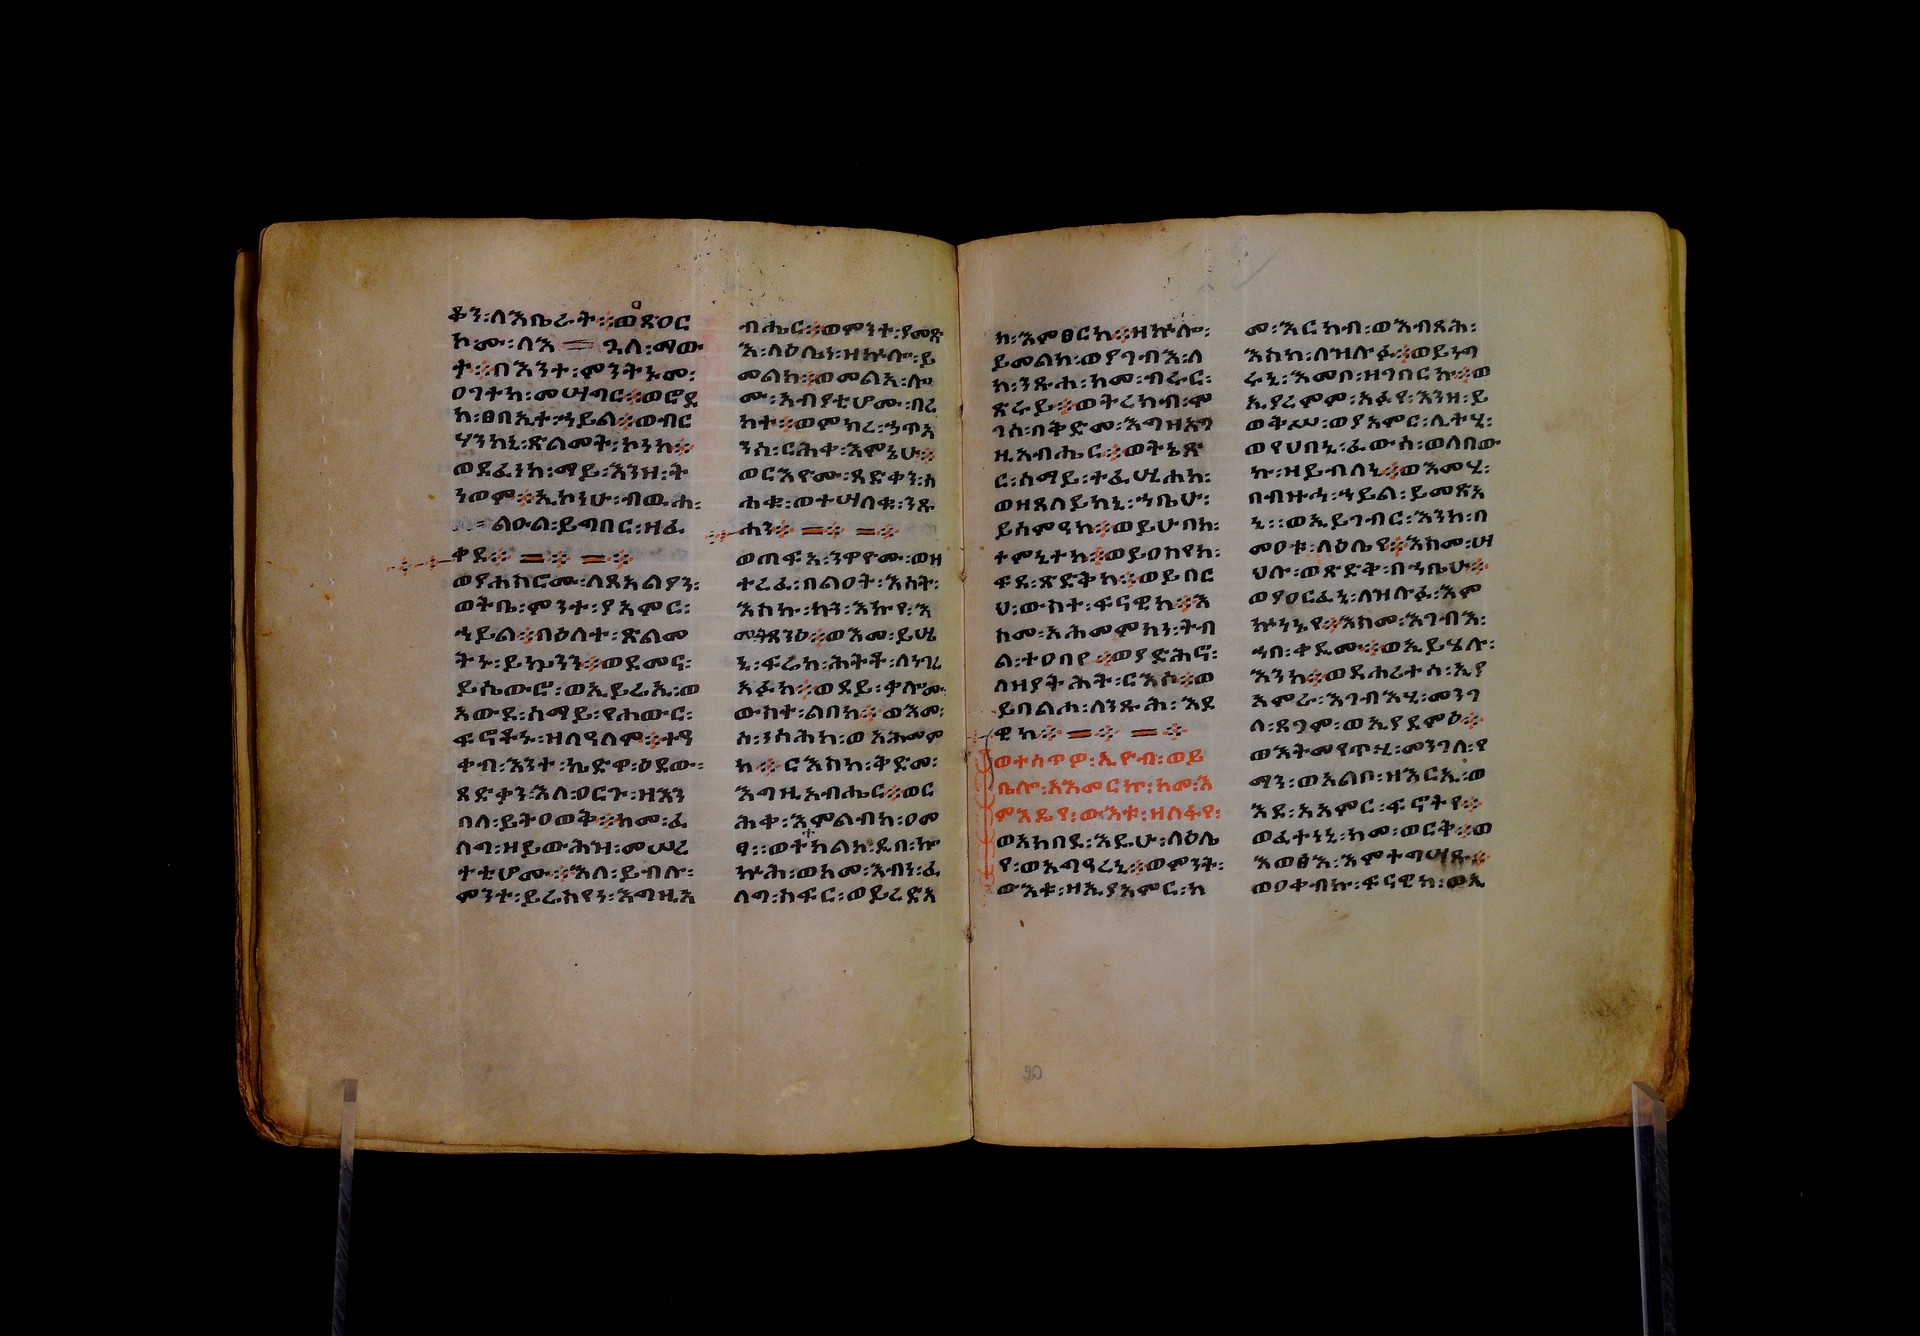 ቆን፡ለእቤራት፨ወጸዐር
ኮሙ፡ለእ ጓለ፡ማው
ታ፨በእንተ፡ምንትኑ፡መ፡
ዐገተከ፡መሣግር፨ወሮደ
ከ፡ፀበኢተ፡ኀይል፨ወብር
ሃንከኒ፡ጽልመት፡ኮነከ፨
ወደፈነከ፡ማይ፡እንዘ፡ት
ነውም፨ኢኮነሁ፡ብዉሐ፡
ልዑል፡ይግበር፡ዘፈ
ቀደ፨
ወያሐስሮሙ፡ለጸአልያን፡
ወትቤ፡ምንተ፡ያአምር፡
ኀይል፨በዕለተ፡ጽልመ
ትኑ፡ይኴንን፨ወደመና፡
ይሴውሮ፡ወኢይሬኢ፡ወ
አውደ፡ሰማይ፡የሐውር፡
ፍኖቶኑ፡ዘለዓለም፨ተዓ
ቀብ፡እንተ፡ኬድዋ፡ዕደው፡
ጻድቃን፡እለ፡ዐርጉ፡ዘእን
በለ፡ይትዐወቅ፨ከመ፡ፈ
ለግ፡ዘይውሕዝ፡መሠረ
ተቲሆሙ፨እለ፡ይብሉ፡
ምንተ፡ይረስየነ፡እግዚአ
ብሔር፨ወምንተ፡ያመጽ
እ፡ለዕሌነ፡ዘኵሎ፡ይ
መልክ፨ወመልአ፡ሎ
ሙ፡አብያቲሆሙ፡በረ
ከተ፨ወምክረ፡ኃጥአ
ንሰ፡ርሕቀ፡እምኔሁ፨
ወርእዮሙ፡ጻድቃን፡ሰ
ሐቁ፡ወተሣለቁ፡ንጹ
ሐን፨
ወጠፍአ፡ንዋዮሙ፡ወዘ
ተረፈ፡በልዐት፡እሳት፡
እስኩ፡ኩን፡እኩየ፡እ
መትጸንዕ፨ወእመ፡ይሤ
ኒ፡ፍሬከ፡ሕትት፡ለነገረ
አፉከ፨ወደይ፡ቃሎሙ
ውስተ፡ልበከ፨ወእመ፡
ሰ፡ንስሕከ፡ወአሕመም
ከ፨ርእስከ፡ቅድመ፡
እግዚአብሔር፨ወር
ሕቀ፡እምልብከ፡ዐመ
ፃ፡፡ወተከልከ፡ደበ፡ኰ
ኵሕ፡ወከመ፡እብነ፡ፈ
ለግ፡ሰፍር፡ወይረድአ
ከ፡እምፀርከ፨ዘኵሎ፡
ይመልክ፡ወያገብእ፡ለ
ከ፡ንጹሐ፡ከመ፡ብሩር፡
ጽሩይ፨ወትረክብ፡ሞ
ገሰ፡በቅድመ፡እግዚአ
ብሔር፨ወትኔጽ
ር፡ሰማይ፡ተፈሢሐከ፡
ወዘጸለይከኒ፡ኀቤሁ፡
ይሰምዓከ፨ወይሁበከ፡
ተምኔተከ፨ወይዐስየከ፡
ፍደ፡ጽድቅከ፨ወይበር
ህ፡ውስተ፡ፍናዊከ፨እ
ስመ፡አሕመምከነ፡ትብ
ል፡ተዐበየ፨ወያድሕኖ፡
ለዘያትሕት፡ርእሶ፨ወ
ይባልሐ፡ለንጹሕ፡እደ
ዊከ፨
ወተሰጥዎ፡ኢዮብ፡ወይ
ቤሎ፡አአመርኩ፡ከመ፡እ
ምእዴየ፡ውእቱ፡ዘለፋየ፡
ወአክበደ፡እዴሁ፡ላዕሌ
የ፡ወአግዓረኒ፨ወምንት፡
ውእቱ፡ዘኢያአምር፡ከ
መ፡እርከብ፡ወእብጻሕ፡
እስከ፡ለዝሉፉ፨ወይነግ
ሩኒ፡እመቦ፡ዘገበርኩ፨ወ
ኢያረምም፡አፉየ፡እንዘ፡ይ
ትዋቀሥ፡ወያአምር፡ሊተሂ፡
ወየሀበኒ፡ፈውሰ፡ወለበው
ኩ፡ዘይብለኒ፨ወእመሂ፡
በብዙኅ፡ኀይል፡ይመጽአ
ኒ፡፡ወኢይገብር፡እንከ፡በ
መዐቱ፡ላዕሌየ፨እስመ፡ሀ
ህሉ፡ወጽድቅ፡በኀቤሁ፨
ወያዐርፈኒ፡ለዝሉፉ፡እም
ኵነኔየ፨እስመ፡እገብእ፡
ኀበ፡ቀዳሚ፨ወኢይሄሉ፡
እንከ፨ወደሐሪተሰ፡ኢያ
አምራ፡እገብእሂ፡መንገ
ለ፡ጸጋም፡ወኢያደምዕ፨
ወእትመየጥሂ፡መንገለ፡የ
ማን፡ወአልቦ፡ዘእርኢ፡ወ
እደ፡አአምር፡ፍኖትየ፨
ወፈተነኒ፡ከመ፡ወርቅ፨ወ
እወፅእ፡እምተግሣጹ፨
ወዐቀብኩ፡ፍናዊከ፡ወኢ